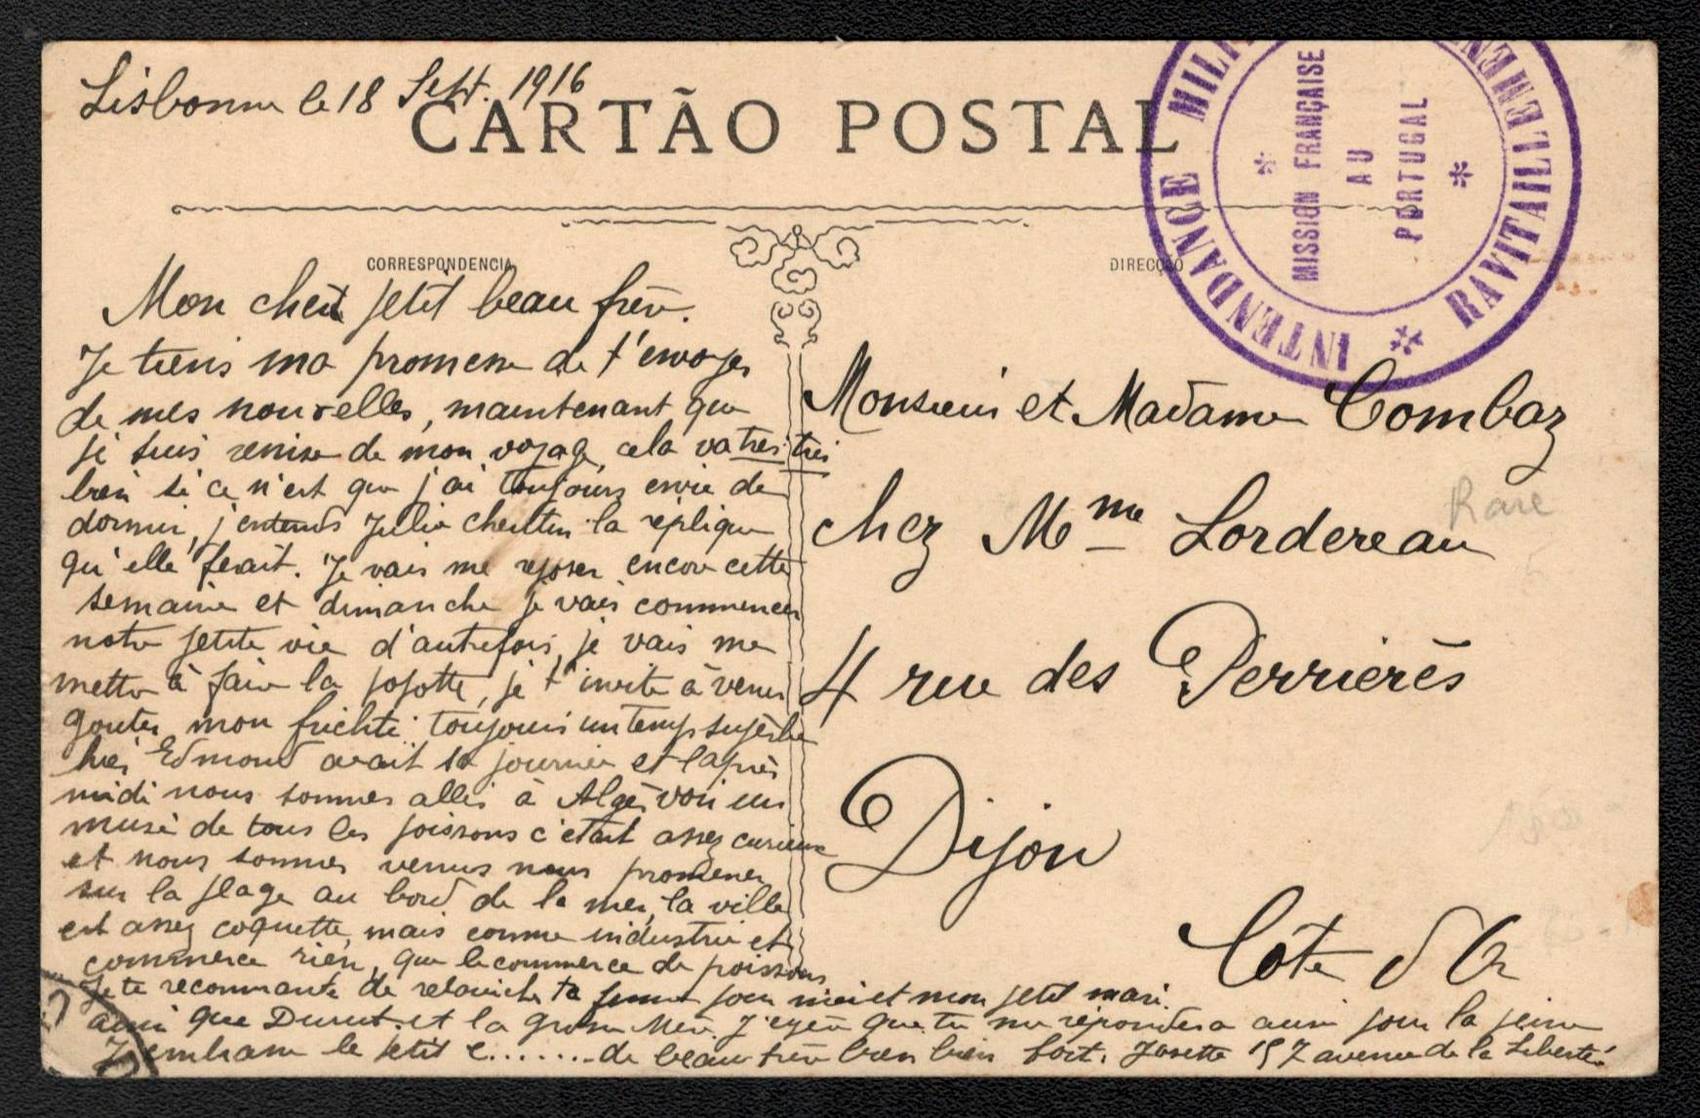 Lisbonne le 18 Sept. 1916
CARTÃO POSTAL
INTENDANCE MILI
RAVITAILLEMEN
MISSION FRANÇAISE
AU
PORTUGAL
CORRESPONDENCIA
DIRECÇÃO
Mon cher petit beau frère.
Je tiens ma promesse de t'envoyer
de mes nouvelles, maintenant que
je suis remise de mon voyage, cela va très très
bien si ce n'est que j'ai toujours envie de
dormir, j'entends Julia la réplique
qu'elle ferait. Je vais me reposer encore cette
semaine et dimanche je vais commencer
notre petite vie d'autrefois, je vais me
mettre à faire la popotte, je t'invite à venir
gouter mon frichti. toujours un temps superbe
hier Edmond avait sa journée et l'après
midi nous sommes allés à Algès voir un
musé de tous les poissons c'était assez curieux
et nous sommes venus nous promener
sur la plage au bord de la mer, la ville
est assez coquette, mais comme industrie et
commerce rien, que le commerce de poissons
Je te recommante de ta femme pour moi et mon petit mari.
ainsi que et la grosse Mère. J'espère que tu me répondera aussi pour la peine
J'embrasse le petit c....... de beau frère bien bien fort. Josette 157 avenue de la Liberté
Monsieur et Madame Combaz
chez Mme Lordereau
4 rue des Perrières
Dijon
Côte d'Or
Rare